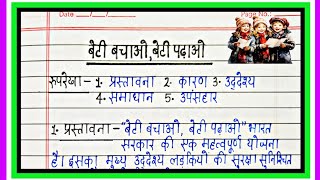 Date __/__/__
Page No.:
बेटी बचाओ, बेटी पढ़ाओ
रुपरेखा - 1. प्रस्तावना 2. कारण 3. उद्देश्य
4. समाधान 5. उपसंहार
1. प्रस्तावना - "बेटी बचाओ, बेटी पढ़ाओ" भारत
सरकार की एक महत्वपूर्ण योजना
है। इसका मुख्य उद्देश्य लड़कियों की सुरक्षा सुनिश्चित